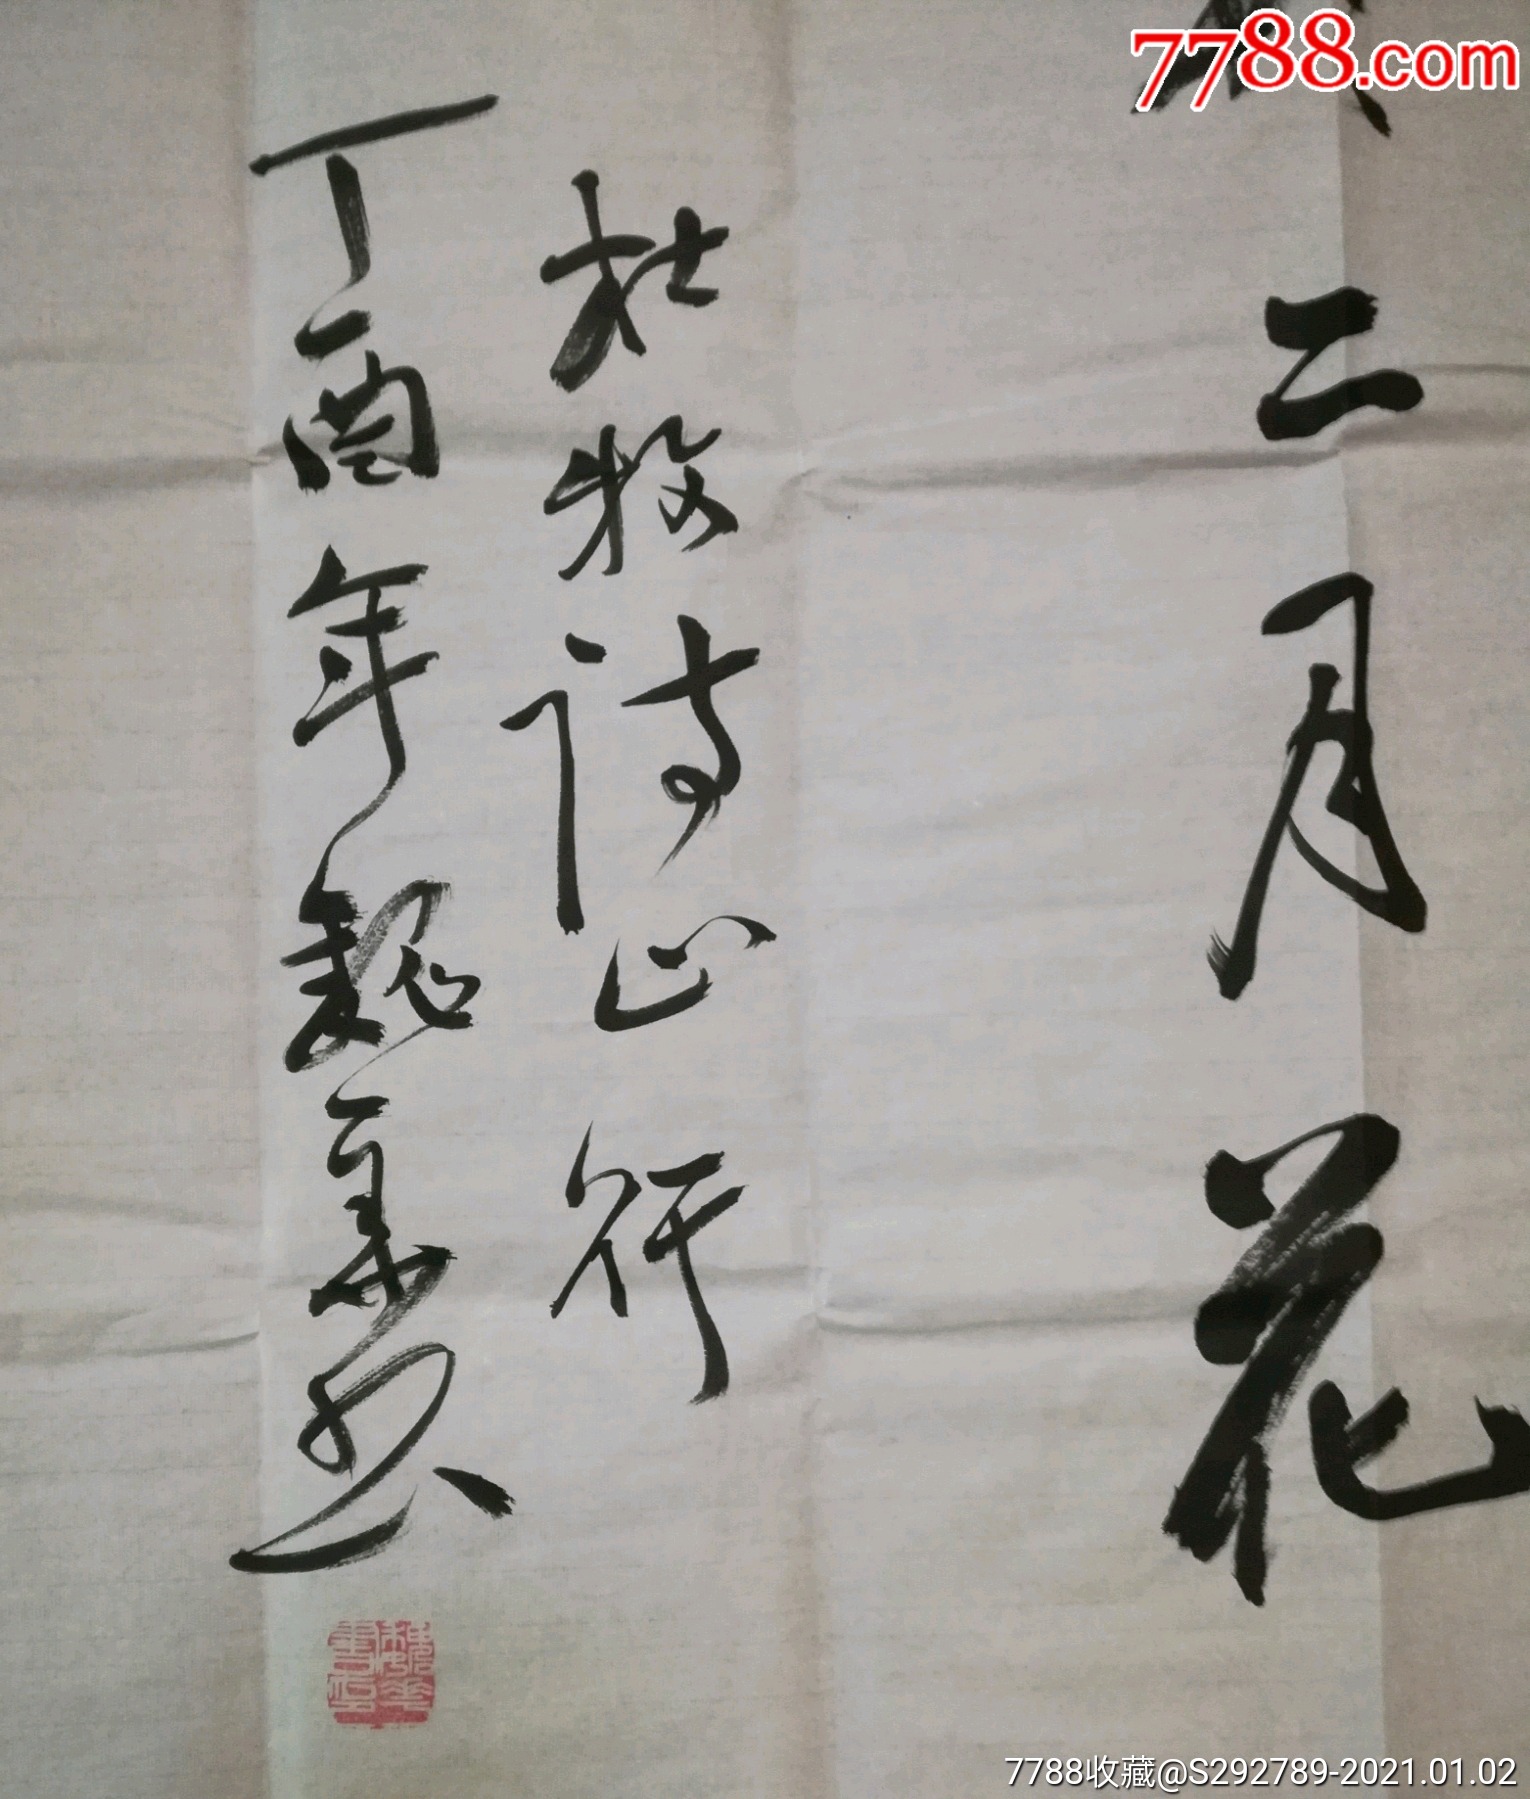 7788.com
二月花
杜牧诗山行
丁酉年魏华书
7788收藏@S292789-2021.01.02